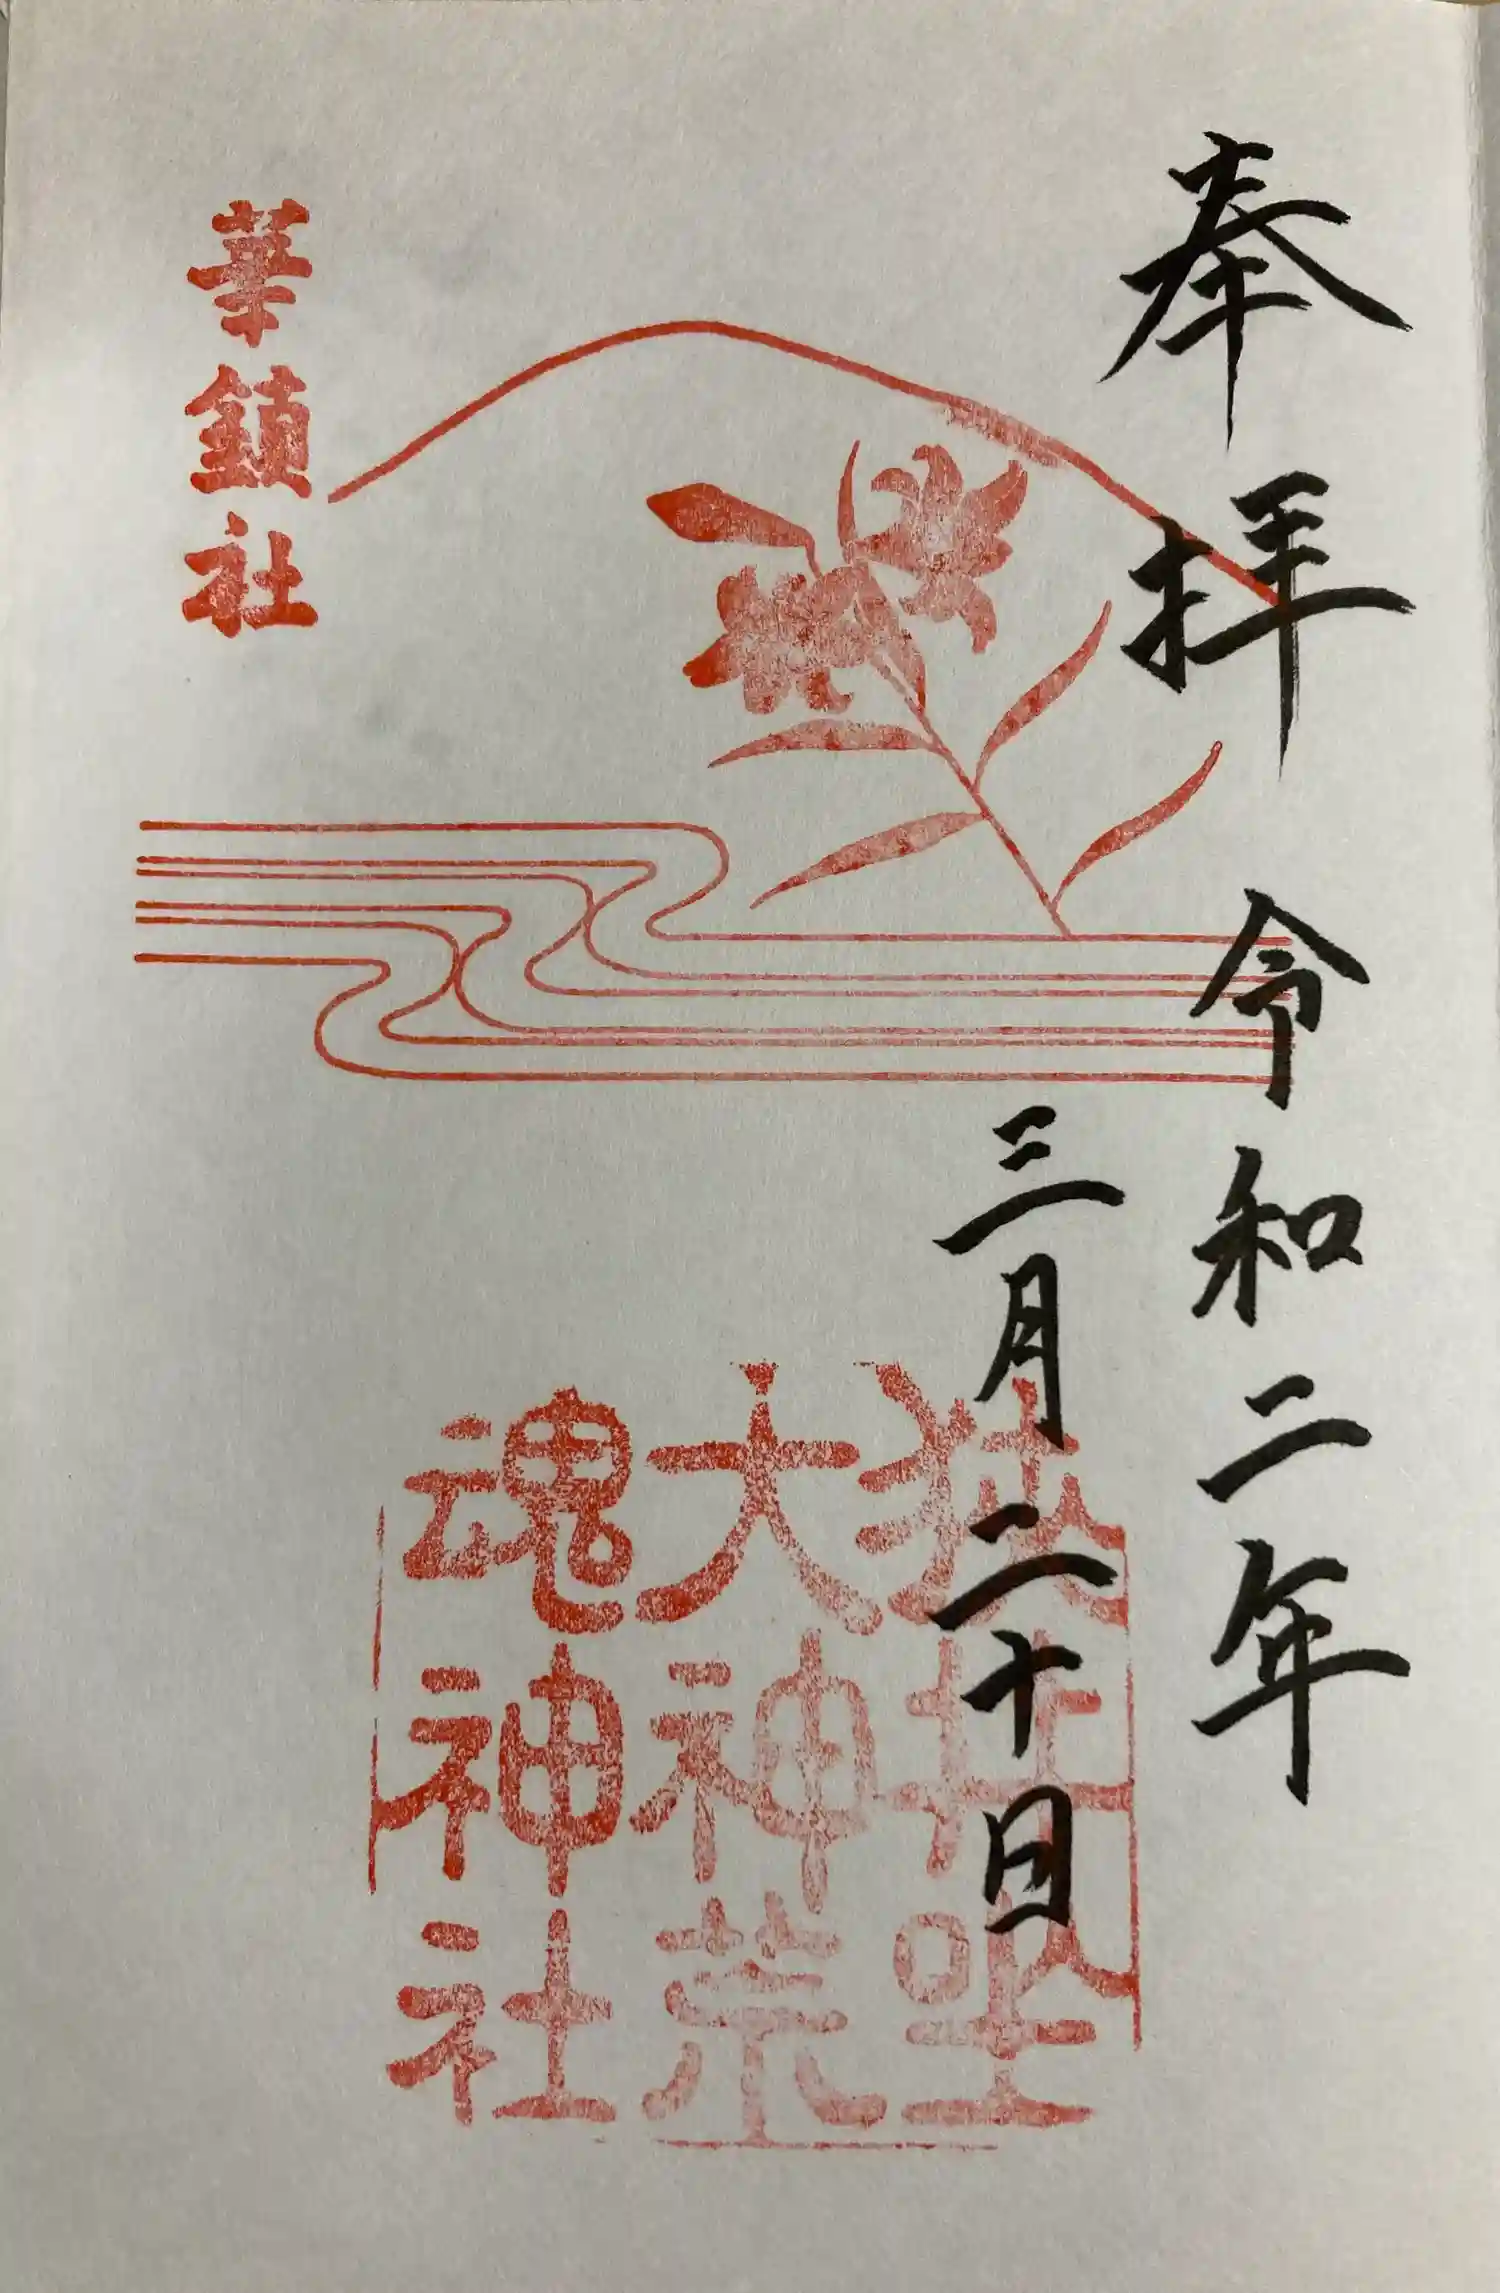 奉拝
令和二年
三月二十日
狭井坐
大神荒
魂神社
華鎮社